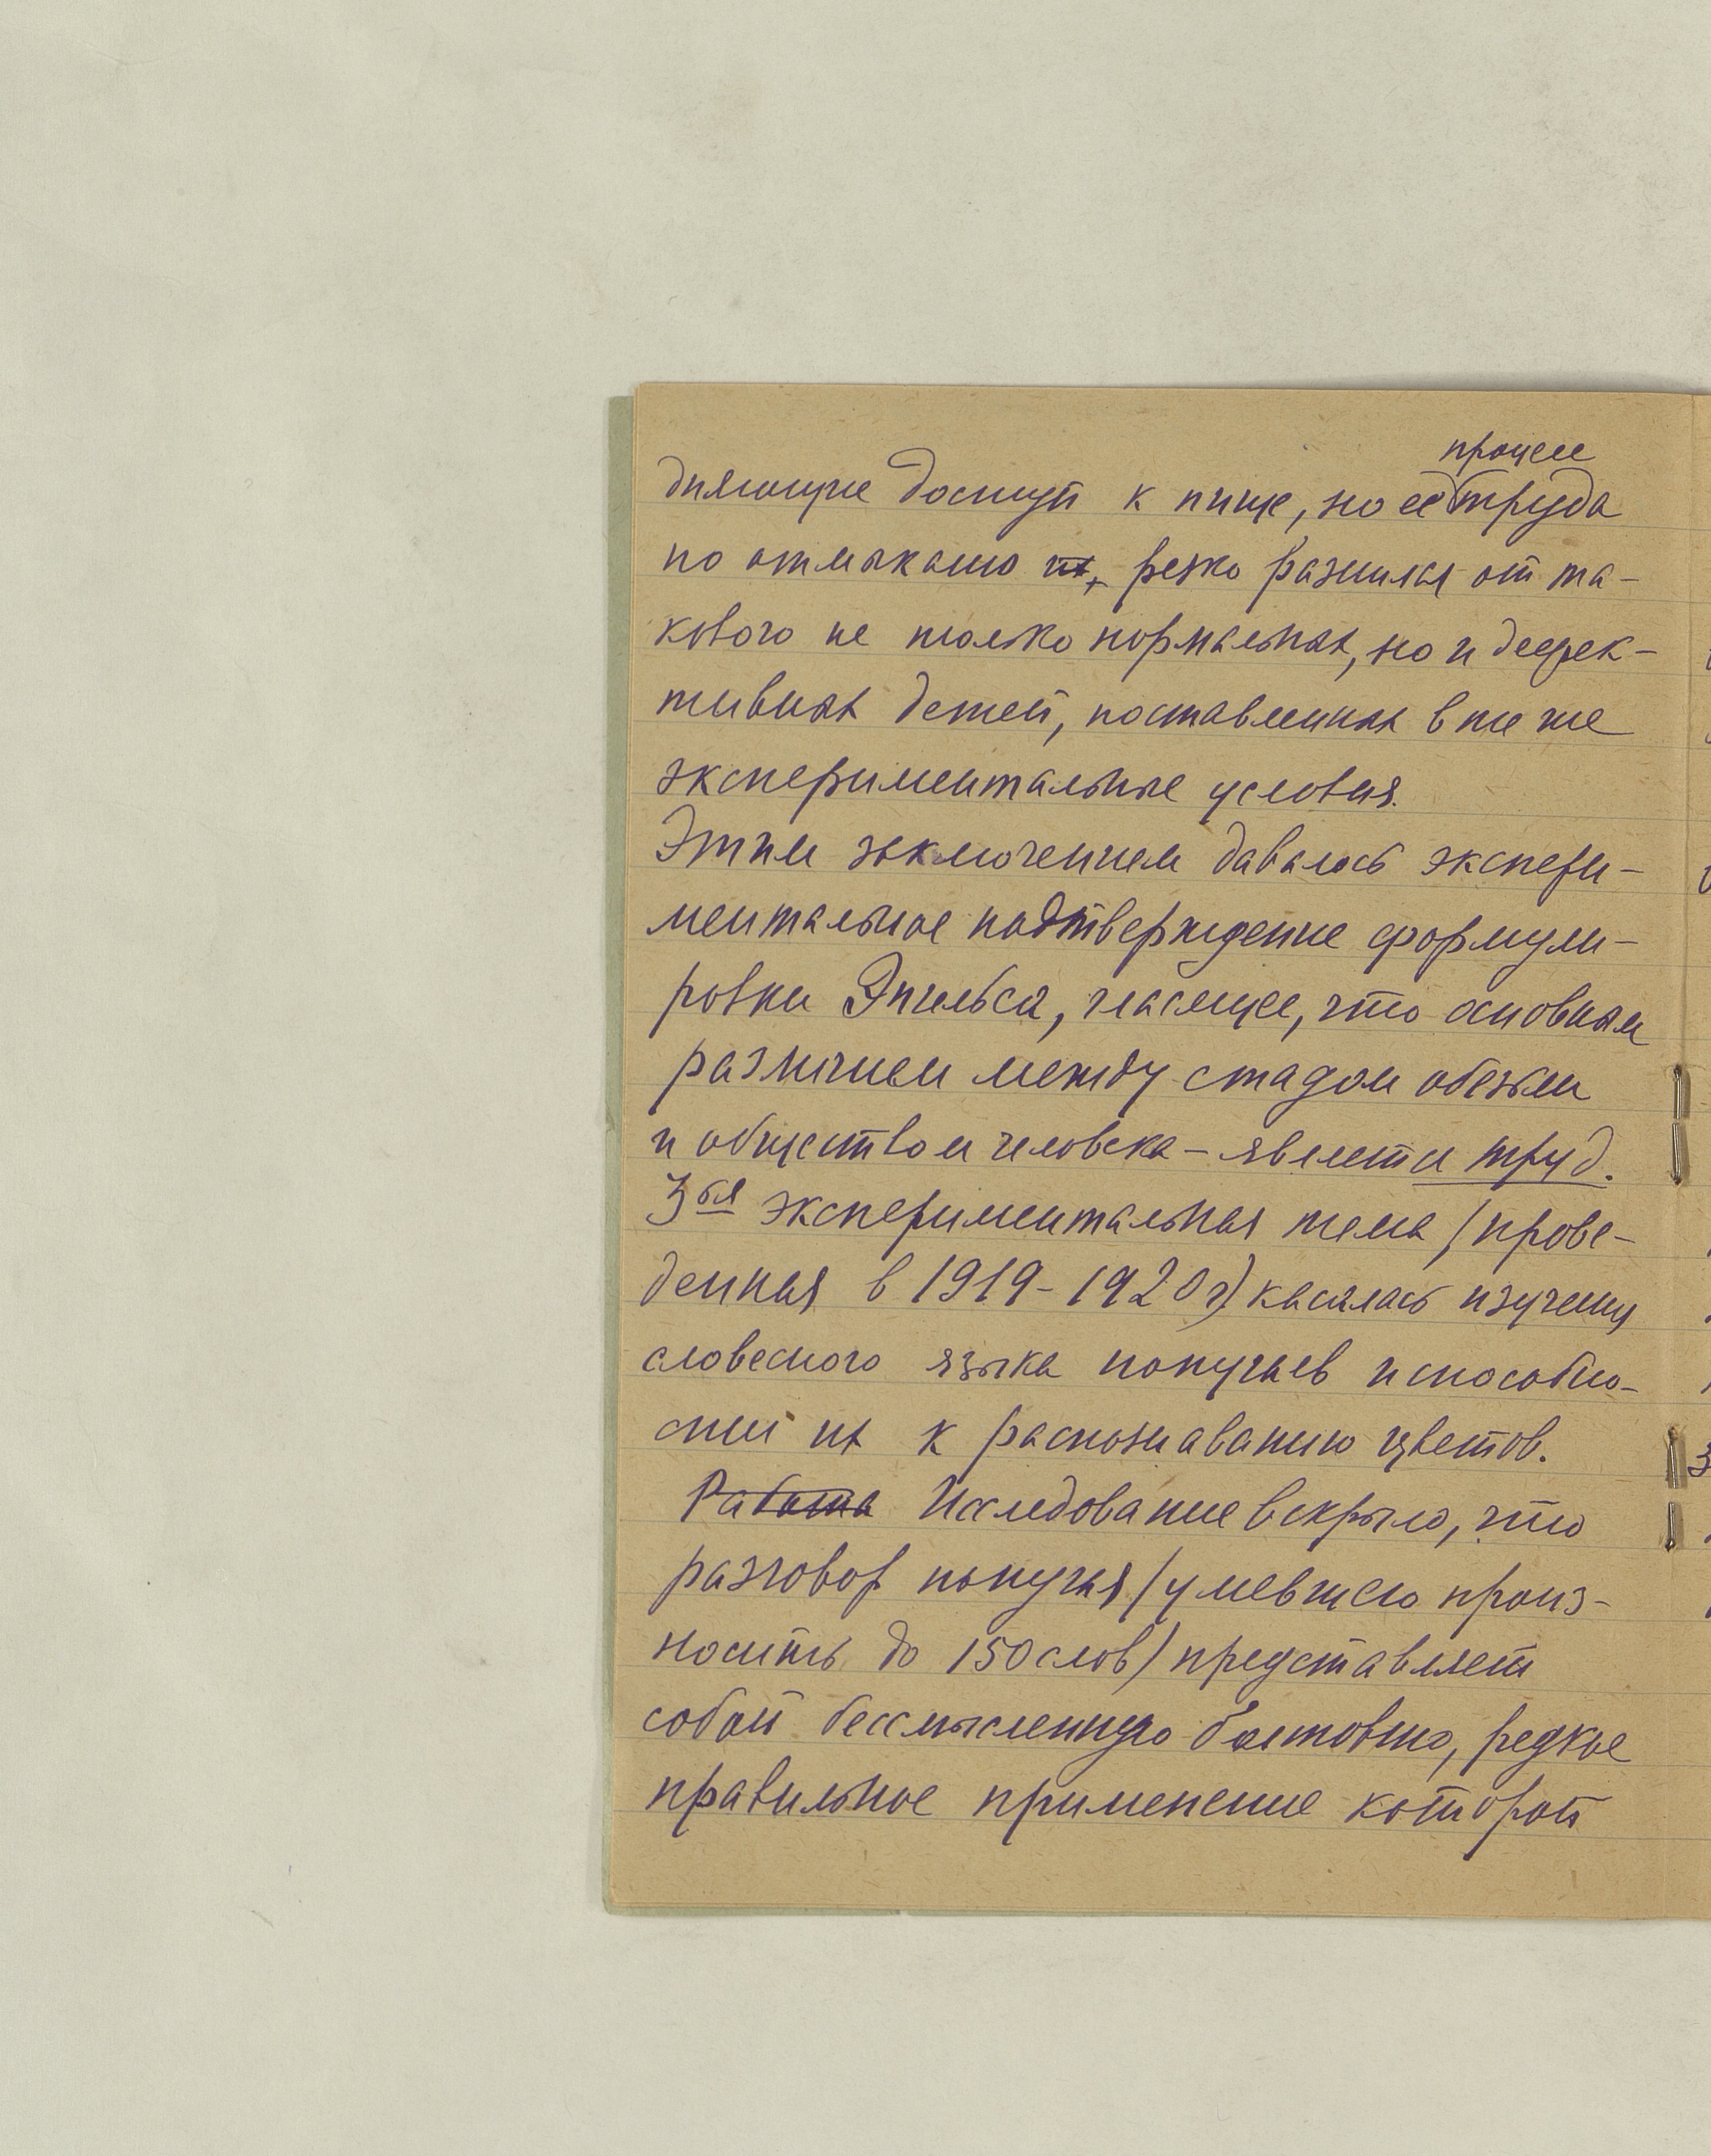 процесс
дняющие доступ к пище, но её труда
по отмыканию их, резко разнился от та-
кового не только нормальных, но и дефек-
тивных детей, поставленных в те же
экспериментальные условия.
Этим заключением давалось экспери-
ментальное подтверждение формули-
ровки Энгельса, гласящее, что основным
различием между стадом обезьян
и обществом человека – является труд.
3ья экспериментальная тема (прове-
денная в 1919-1920 г) касалась изучения
словесного языка попугаев и способно-
стей их к распознаванию цветов.
Работа Исследование вскрыло, что
разговор попугая (умевшего произ-
носить до 150 слов) представляет
собой бессмысленную болтовню, редкое
правильное применение которой